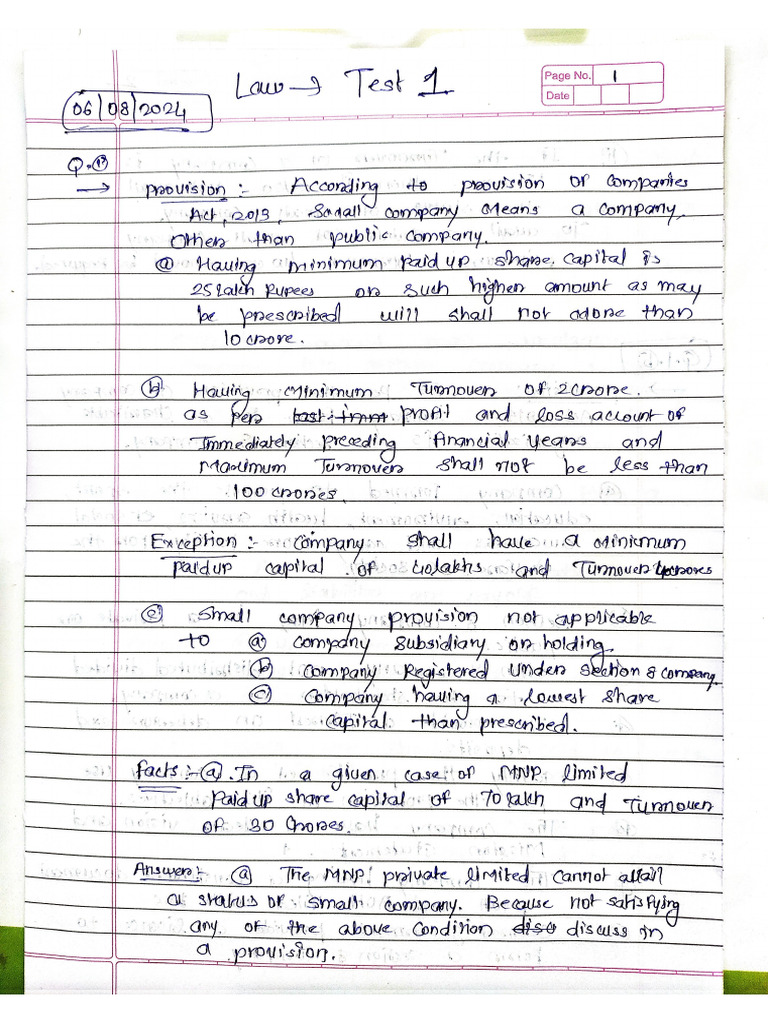 Law → Test 1
Page No. 1
Date
06/08/2024
Q.
→ Provision :- According to provision of Companies
Act, 2013, Small company means a company
other than public company.
ⓐ Having minimum paid up share capital is
25 lakh rupees or such higher amount as may
be prescribed will shall not more than
10 crore.
ⓑ Having minimum Turnover of 2 crore.
as per profit and loss account of
immediately preceding financial years and
maximum Turnover shall not be less than
100 crores.
Exception :- Company shall have a minimum
paid up capital of 40 lakhs and Turnover 4 crores
ⓒ Small company provision not applicable
to ⓐ company subsidiary or holding.
ⓑ company Registered under section 8 company.
ⓒ company having a lowest share
capital than prescribed.
Facts :- ⓐ. In a given case of MNP limited
Paid up share capital of 70 lakh and Turnover
of 30 Crores.
Answer :- ⓐ The MNP private limited cannot attail
a status of small company. Because not satisfying
any of the above condition disc discuss in
a provision.